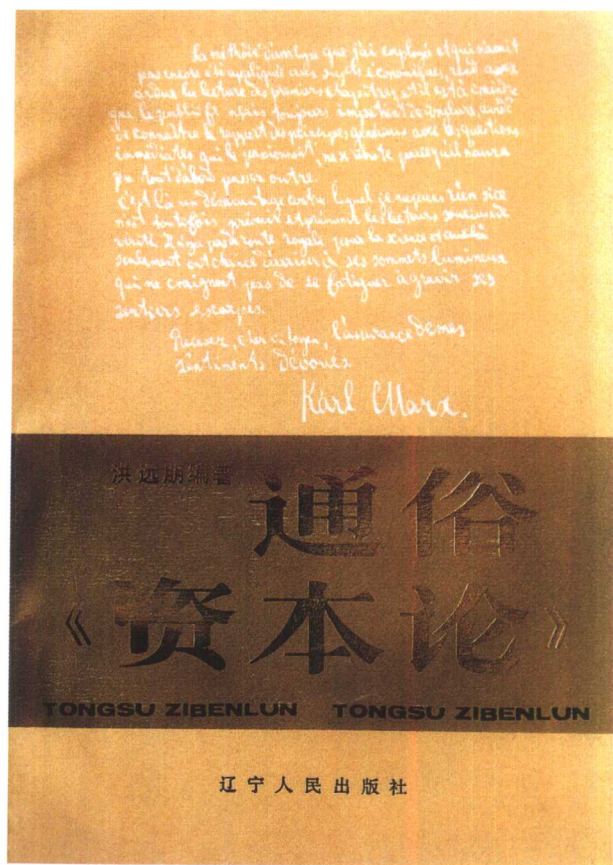 La méthode d'analyse que j'ai employée et qui n'avait
pas encore été appliquée aux sujets économiques, rend assez
ardue la lecture des premiers chapitres, et il est à craindre
que le public toujours impatient de conclure, avide
de connaître le rapport des principes généraux avec les questions
immédiates qui le passionnent, ne se rebute parcequ'il n'aura
pu tout d'abord passer outre.
C'est là un désavantage contre lequel je ne puis rien si ce
n'est toutefois prévenir et prémunir les lecteurs soucieux de
vérité. Il n'y a pas de route royale pour la science et ceux là
seulement ont chance d'arriver à ses sommets lumineux
qui ne craignent pas de se fatiguer à gravir ses
sentiers escarpés.
Recevez, cher citoyen, l'assurance de mes
sentiments dévoués
Karl Marx.
洪远朋编著
通俗
《资本论》
TONGSU ZIBENLUN TONGSU ZIBENLUN
辽宁人民出版社